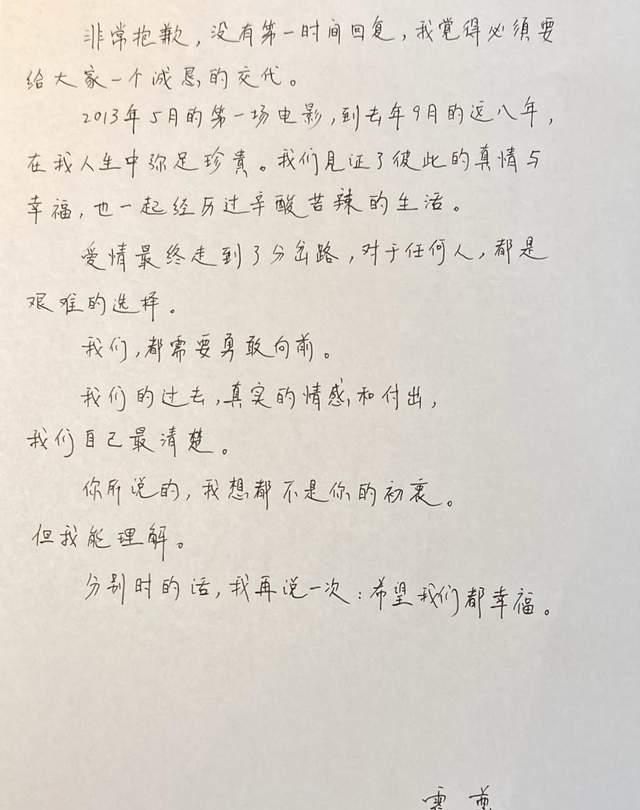 非常抱歉，没有第一时间回复，我觉得必须要
给大家一个诚恳的交代。
2013年5月的第一场电影，到去年9月的这八年，
在我人生中弥足珍貴。我们见证了彼此的真情与
幸福，也一起经历过辛酸苦辣的生活。
爱情最终走到了分岔路，对于任何人，都是
艰难的选择。
我们，都需要勇敢向前。
我们的过去，真实的情感和付出，
我们自己最清楚。
你所说的，我想都不是你的初衷。
但我能理解。
分别时的话，我再说一次：希望我们都幸福。